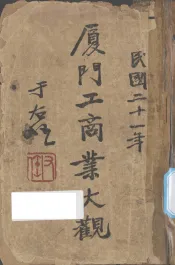 民國二十一年
厦門工商業大觀
于右任